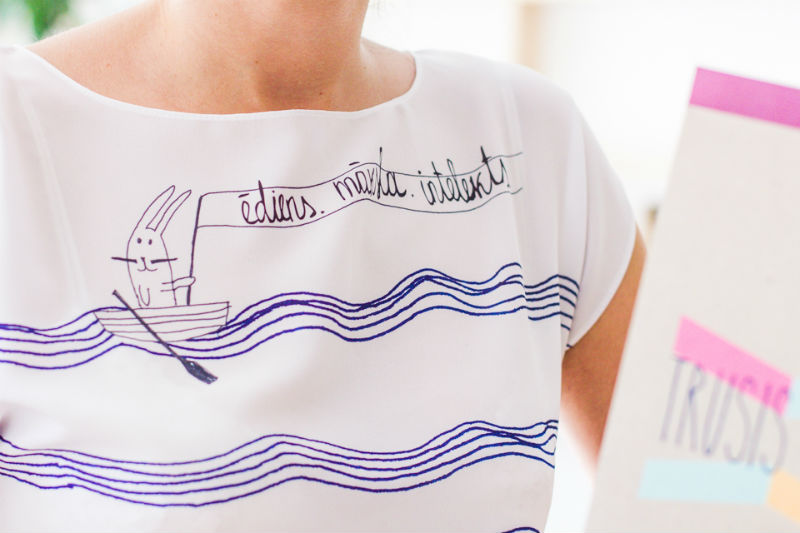 ēdiens. māksla. intelekts.
TRUSIS